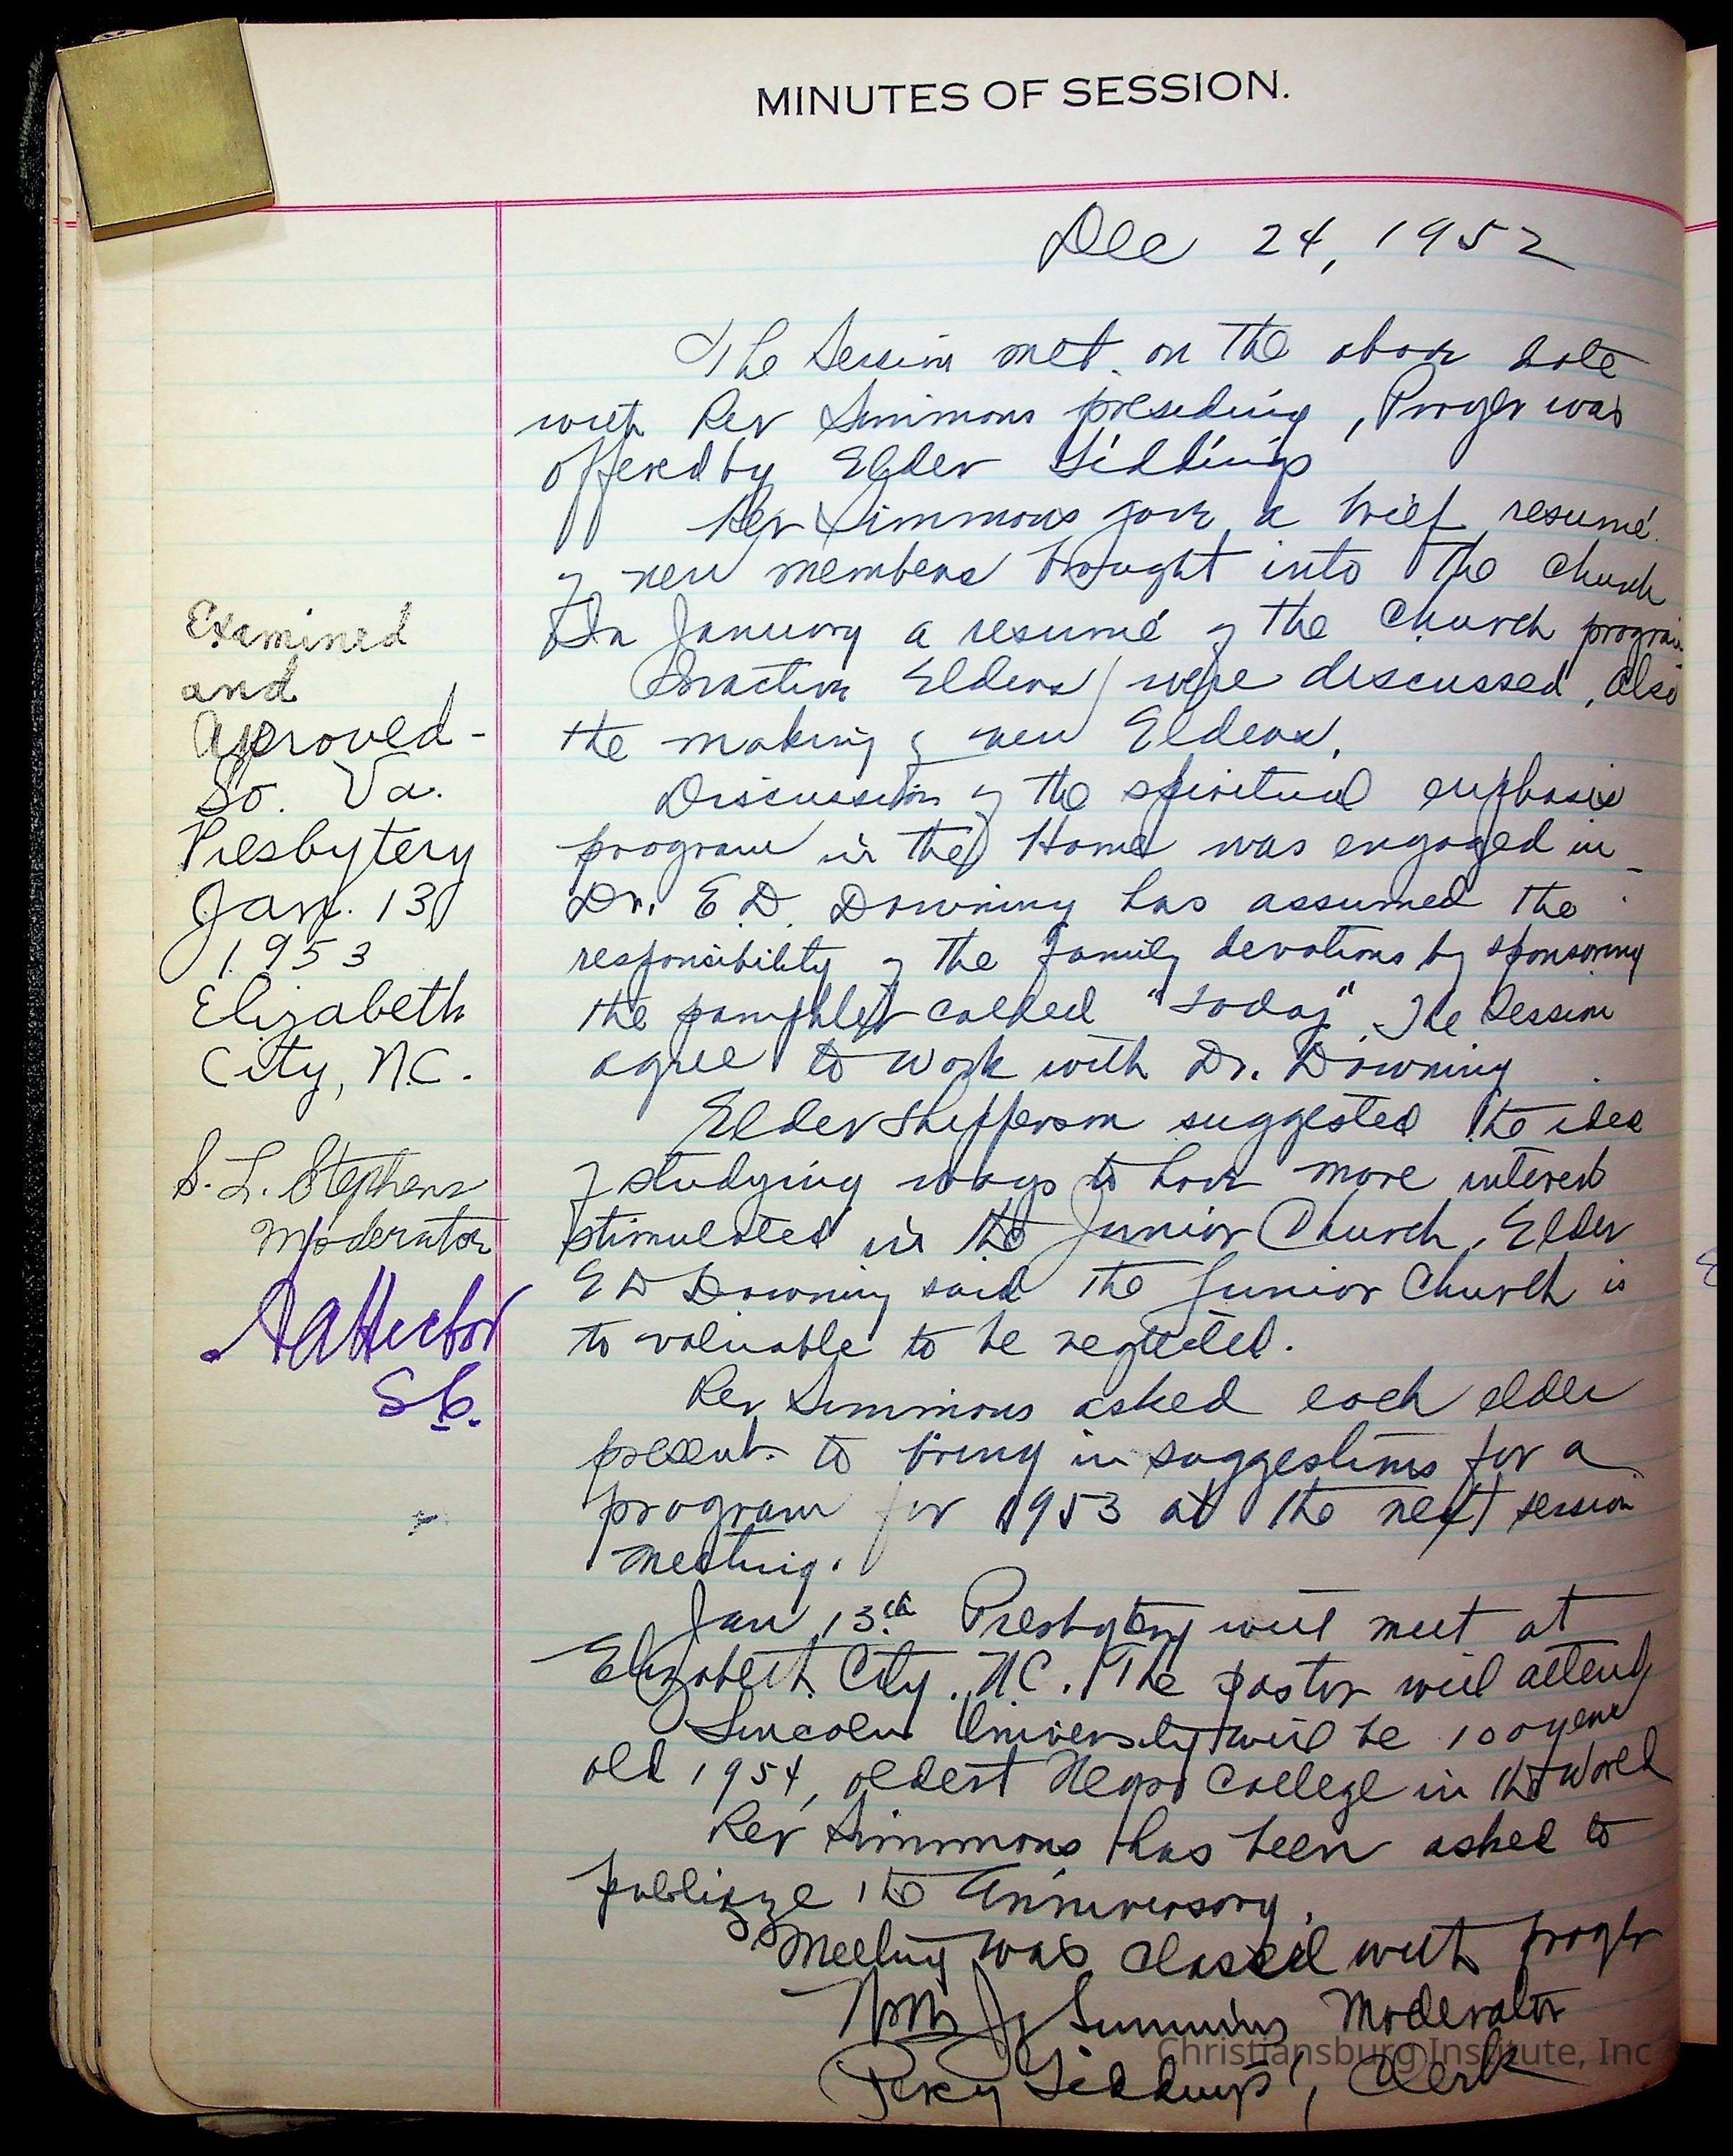 MINUTES OF SESSION.
Dec 24, 1952
The Session met on the above date
with Rev Simmons presiding, Prayer was
offered by Elder Giddings
Rev Simmons gave a brief resumé
of new members brought into the church
In January a resumé of the Church program
Inactive Elders were discussed, also
the making of new Elders.
Discussion of the spiritual emphasis
program in the Home was engaged in
Dr. E. D. Downing has assumed the
responsibility of the family devotions by sponsoring
the pamphlet called "Today". The Session
agree to work with Dr. Downing
Elder Shefferson suggested the idea
of studying ways to have more interest
stimulated in the Junior Church, Elder
E D Downing said the Junior Church is
to valuable to be neglected.
Rev Simmons asked each elder
present to bring in suggestions for a
program for 1953 at the next session
meeting.
Jan 13th Presbytery will meet at
Elizabeth City, N.C. The pastor will attend
Lincoln University will be 100 years
old 1954, oldest Negro College in the World
Rev Simmons has been asked to
publizze the Anniversary.
Meeting was classed with prayer
Simmons Moderator
Giddings, Clerk
Examined
and
Approved -
So. Va.
Presbytery
Jan. 13
1953
Elizabeth
City, N.C.
S. L. Stephens
Moderator
A A Hector
S.C.
Christiansburg Institute, Inc